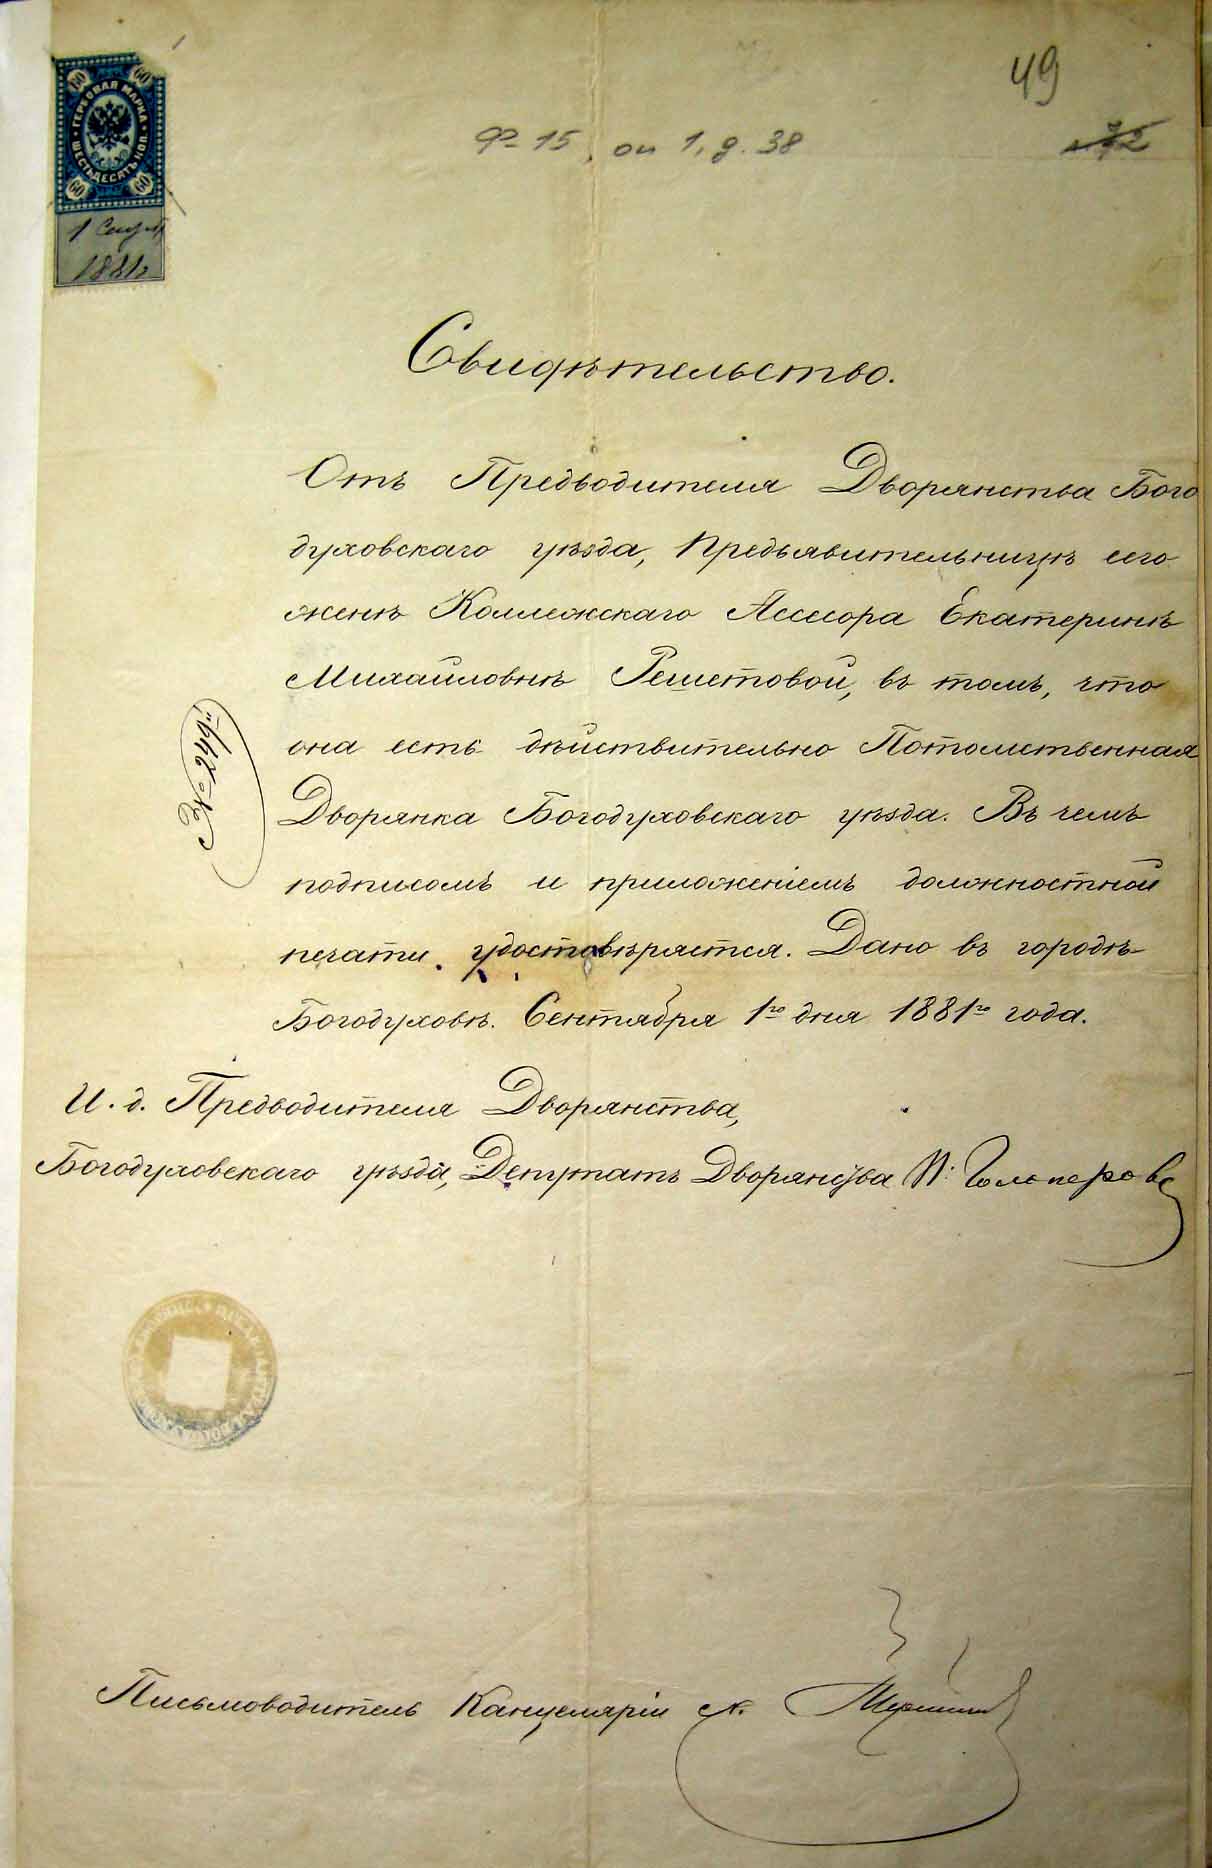 49
Ф-15, оп 1, д. 38
60 60
ГЕРБОВАЯ МАРКА
ШЕСТЬДЕСЯТЪ КОП.
60 60
1 Сент
1881г
Свидѣтельство.
Отъ Предводителя Дворянства Бого
духовскаго уѣзда, Предъявительницѣ сего
женѣ Коллежскаго Ассесора Екатеринѣ
Михайловнѣ Решетовой, въ томъ, что
она есть дѣйствительно Потомственная
Дворянка Богодуховскаго уѣзда. Въ чемъ
подписомъ и приложеніемъ должностной
печати удостовѣряется. Дано въ городѣ
Богодуховѣ. Сентября 1го дня 1881го года.
№ 249й
И. д. Предводителя Дворянства,
Богодуховскаго уѣзда, Депутатъ Дворянства
Письмоводитель Канцеляріи